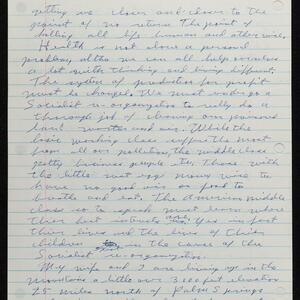 getting us closer and closer to the
point of no return. The point of
killing all life human and otherwise.
Health is not alone a personal
problem, altho we can all help ourselves
a lot with thinking and living different.
The system of production for profit
must be changed. We must undergo a
Socialist re-organization to really do a
thorough job of cleaning our poisoned
land water and air. While the
basic working class suffers the most
from all our polluting, the middle class
petty business people etc. Those with
the little nest egg money wise to
have no good air or food to
breathe and eat. The American middle
class so to speak must learn where
their best interests are, in fact
their lives and the lives of their
children in the cause of the
Socialist re-organization.
My wife and I are living up in the
mountains a little over 3100 feet elevation
25 miles north of Palm Springs